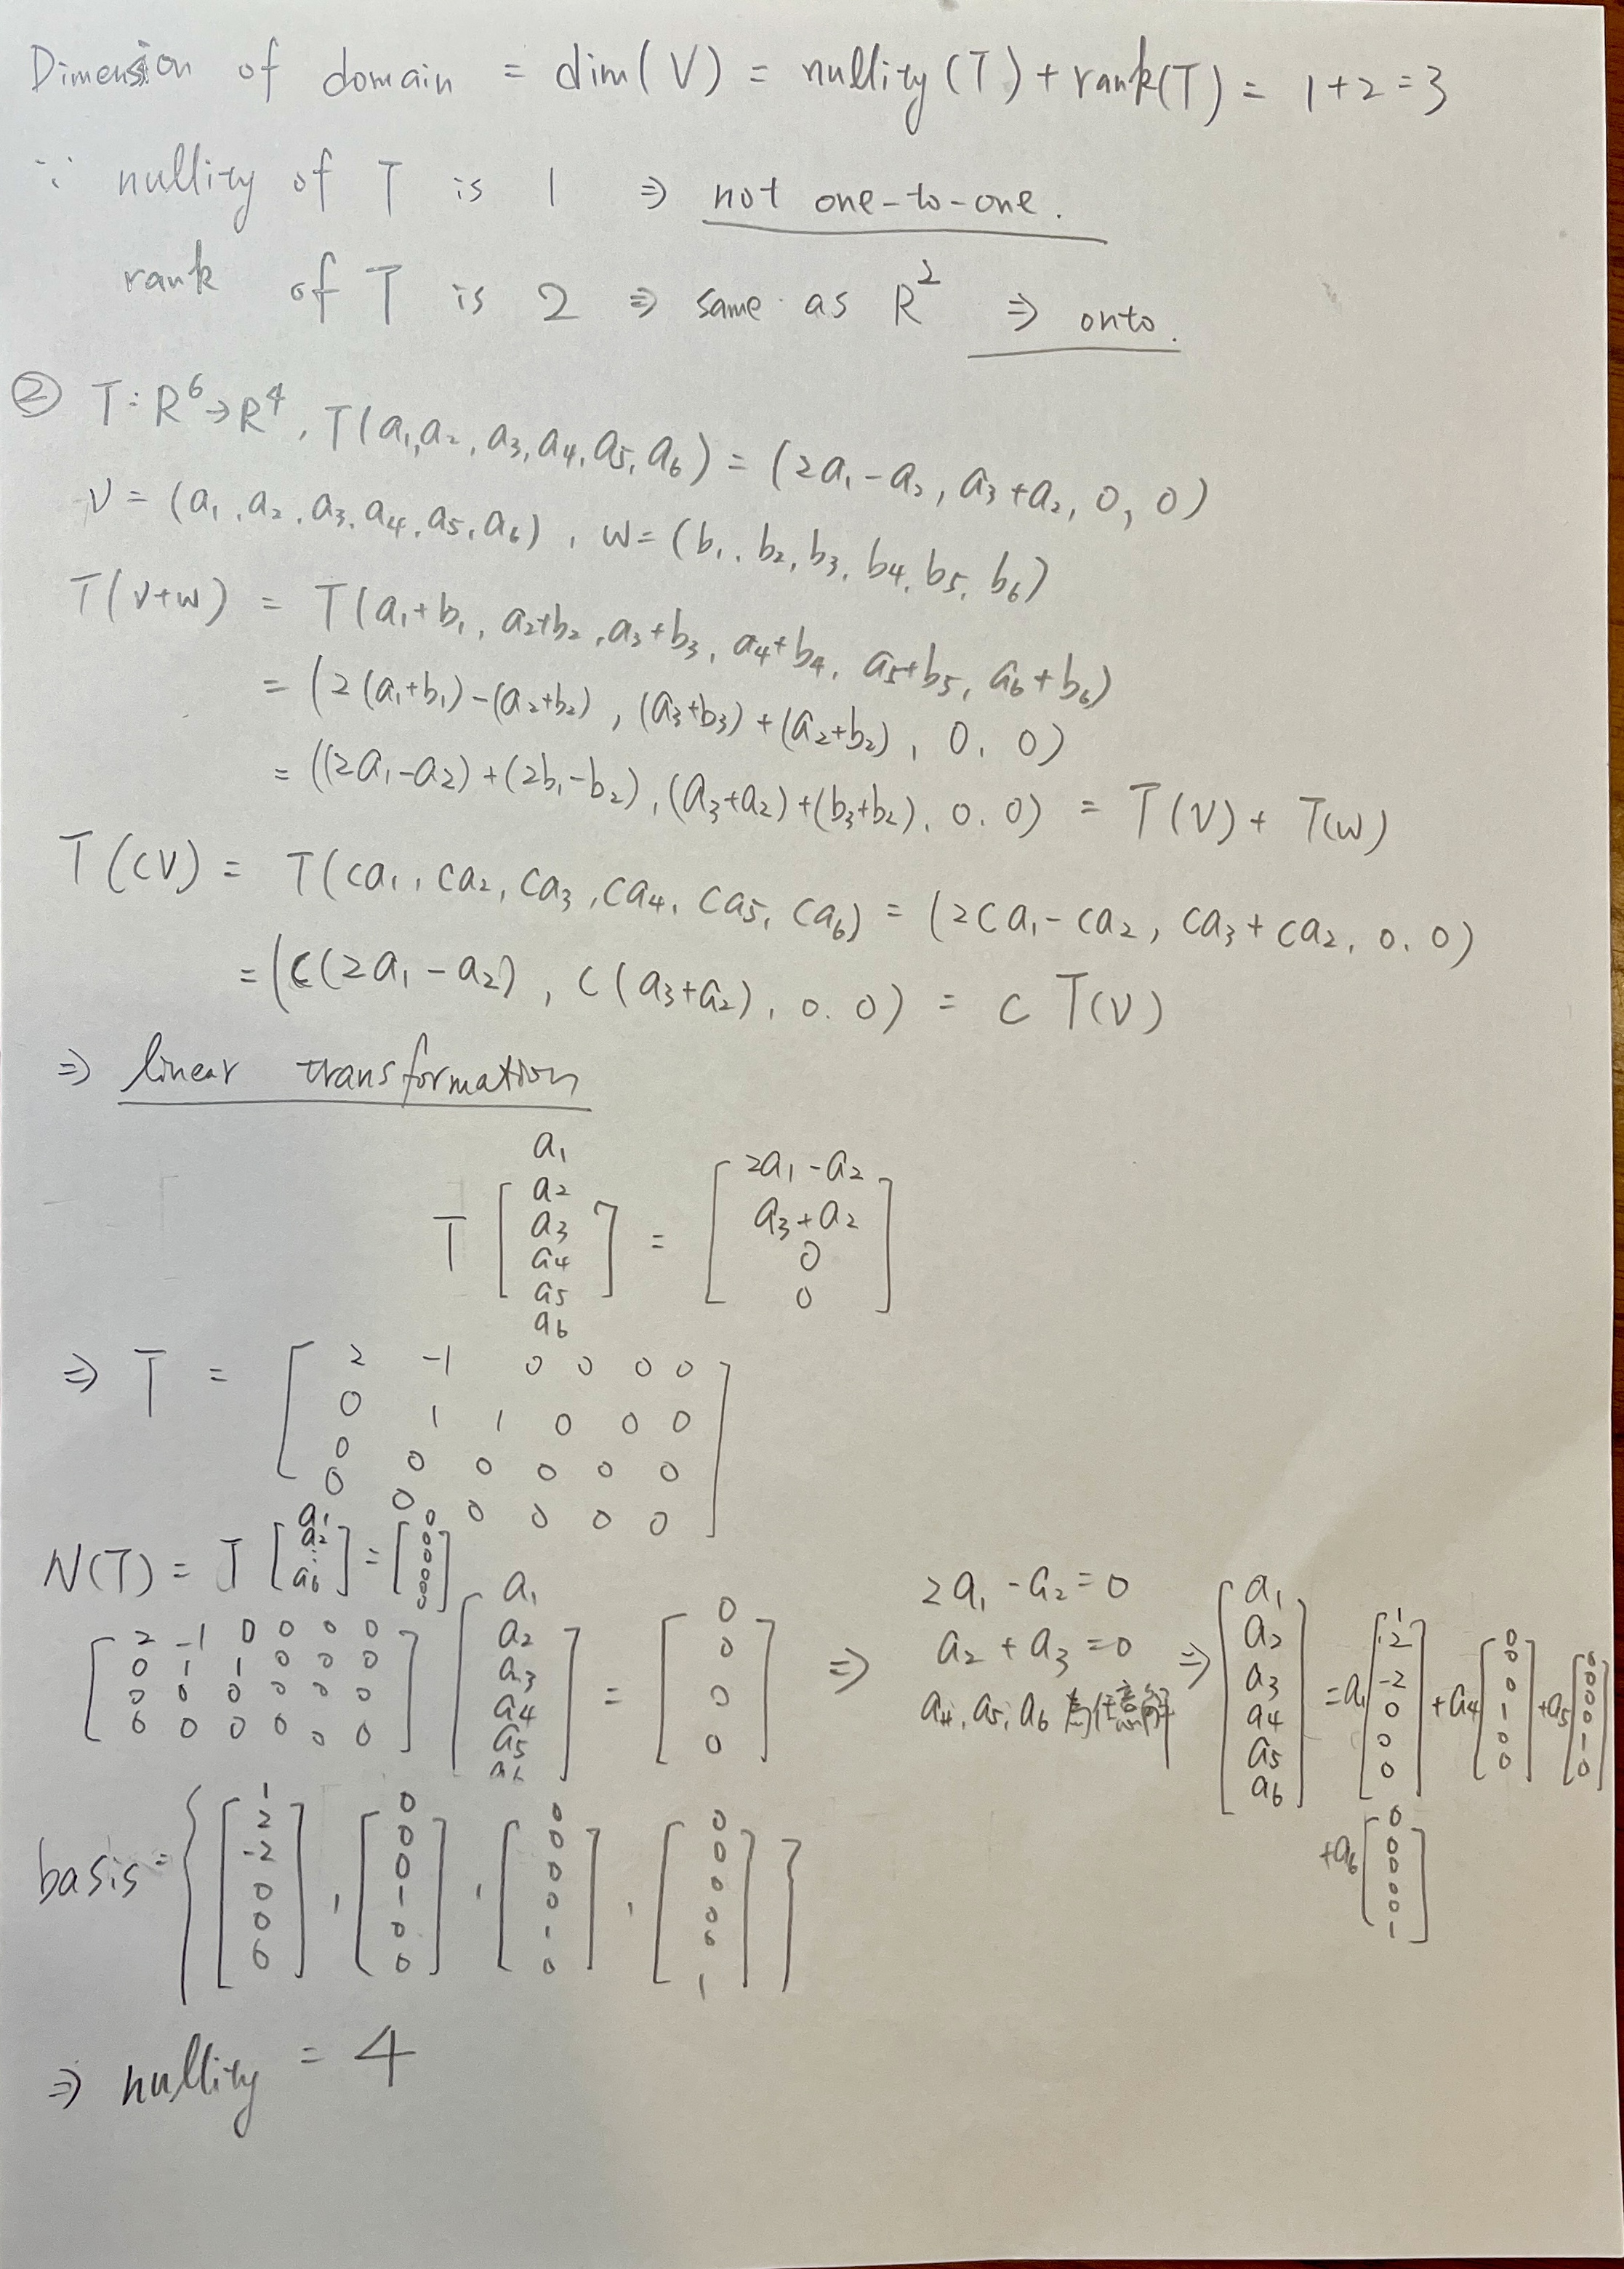 Dimension of domain = dim(V) = nullity(T) + rank(T) = 1+2=3
∵ nullity of T is 1 ⇒ not one-to-one.
rank of T is 2 ⇒ same as R² ⇒ onto.
② T: R⁶→R⁴, T(a₁,a₂,a₃,a₄,a₅,a₆) = (2a₁-a₂, a₃+a₂, 0, 0)
V = (a₁,a₂,a₃,a₄,a₅,a₆), w = (b₁,b₂,b₃,b₄,b₅,b₆)
T(v+w) = T(a₁+b₁, a₂+b₂, a₃+b₃, a₄+b₄, a₅+b₅, a₆+b₆)
= (2(a₁+b₁)-(a₂+b₂), (a₃+b₃)+(a₂+b₂), 0, 0)
= ((2a₁-a₂)+(2b₁-b₂), (a₃+a₂)+(b₃+b₂), 0, 0) = T(V) + T(w)
T(cV) = T(ca₁, ca₂, ca₃, ca₄, ca₅, ca₆) = (2ca₁-ca₂, ca₃+ca₂, 0, 0)
= (c(2a₁-a₂), c(a₃+a₂), 0, 0) = c T(V)
⇒ linear transformation
T [a₁ a₂ a₃ a₄ a₅ a₆] = [2a₁-a₂ a₃+a₂ 0 0]
⇒ T = [2 -1 0 0 0 0
0 1 1 0 0 0
0 0 0 0 0 0
0 0 0 0 0 0]
N(T) = T [a₁ a₂ ⋮ a₆] = [0 0 0 0 0 0]
[2 -1 0 0 0 0
0 1 1 0 0 0
0 0 0 0 0 0
0 0 0 0 0 0] [a₁ a₂ a₃ a₄ a₅ a₆] = [0 0 0 0] ⇒
2a₁-a₂=0
a₂+a₃=0
a₄,a₅,a₆ 為任意解
⇒ [a₁ a₂ a₃ a₄ a₅ a₆] = a₁[1 2 -2 0 0 0] + a₄[0 0 0 1 0 0] + a₅[0 0 0 0 1 0]
+a₆[0 0 0 0 0 1]
basis = {[1 2 -2 0 0 0], [0 0 0 1 0 0], [0 0 0 0 1 0], [0 0 0 0 0 1]}
⇒ nullity = 4